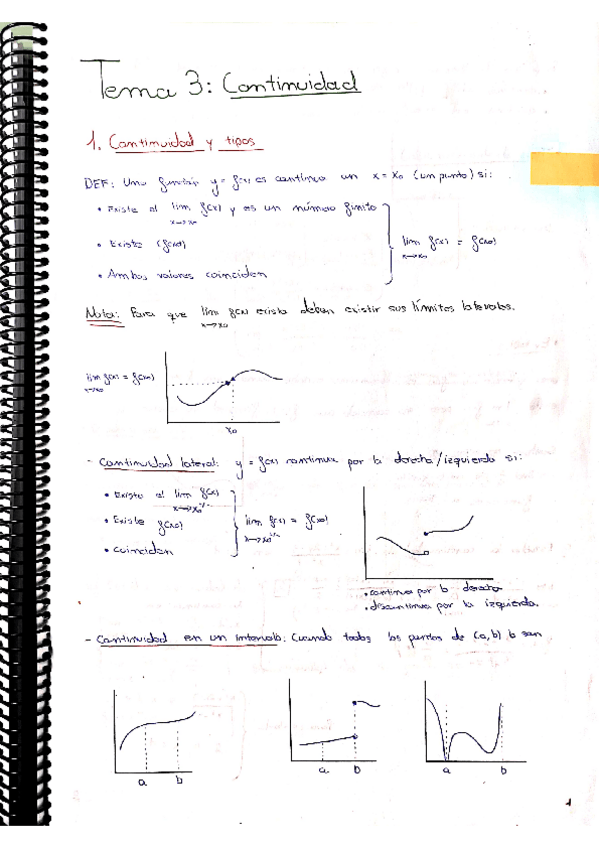 Tema 3: Continuidad
1. Continuidad y tipos
DEF: Una función y = f(x) es continua en x = x₀ (un punto) si:
• Existe el lim f(x) y es un número finito
x→x₀
• Existe f(x₀)
lim f(x) = f(x₀)
x→x₀
• Ambos valores coinciden
Nota: Para que lim f(x) exista deben existir sus límites laterales.
x→x₀
lim f(x) = f(x₀)
x→x₀
x₀
- Continuidad lateral: y = f(x) continua por la derecha/izquierda si:
• Existe el lim f(x)
x→x₀⁺/⁻
• Existe f(x₀)
lim f(x) = f(x₀)
x→x₀⁺/⁻
• coinciden
• continua por la derecha
• discontinua por la izquierda.
- Continuidad en un intervalo: Cuando todos los puntos de (a,b) b son
a b
a b
a b
1